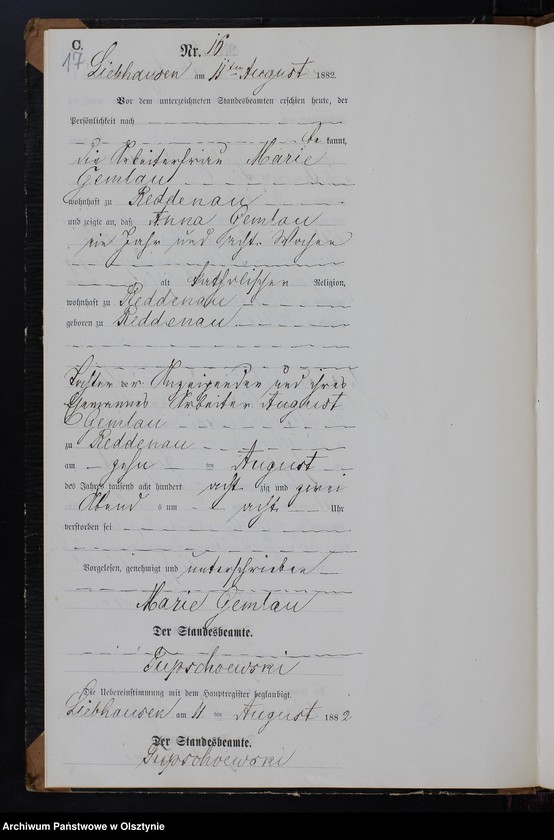 C.
17
Nr. 16
Liebhausen am 11ten August 1882.
Vor dem unterzeichneten Standesbeamten erschien heute, der
Persönlichkeit nach
be kannt,
die Arbeiterfrau Marie
Gemlau
wohnhaft zu Reddenau
und zeigte an, daß Anna Gemlau
ein Jahr und acht Wochen
alt katholischer Religion,
wohnhaft zu Reddenau
geboren zu Reddenau
Tochter der Anzeigenden und ihres
Ehemannes Arbeiter August
Gemlau
zu Reddenau
am zehn ten August
des Jahres tausend acht hundert acht zig und zwei
Abend s um acht Uhr
verstorben sei
Vorgelesen, genehmigt und unterschrieben
Marie Gemlau
Der Standesbeamte.
Die Uebereinstimmung mit dem Hauptregister beglaubigt.
Liebhausen am 11 ten August 1882
Der Standesbeamte.
Archiwum Państwowe w Olsztynie